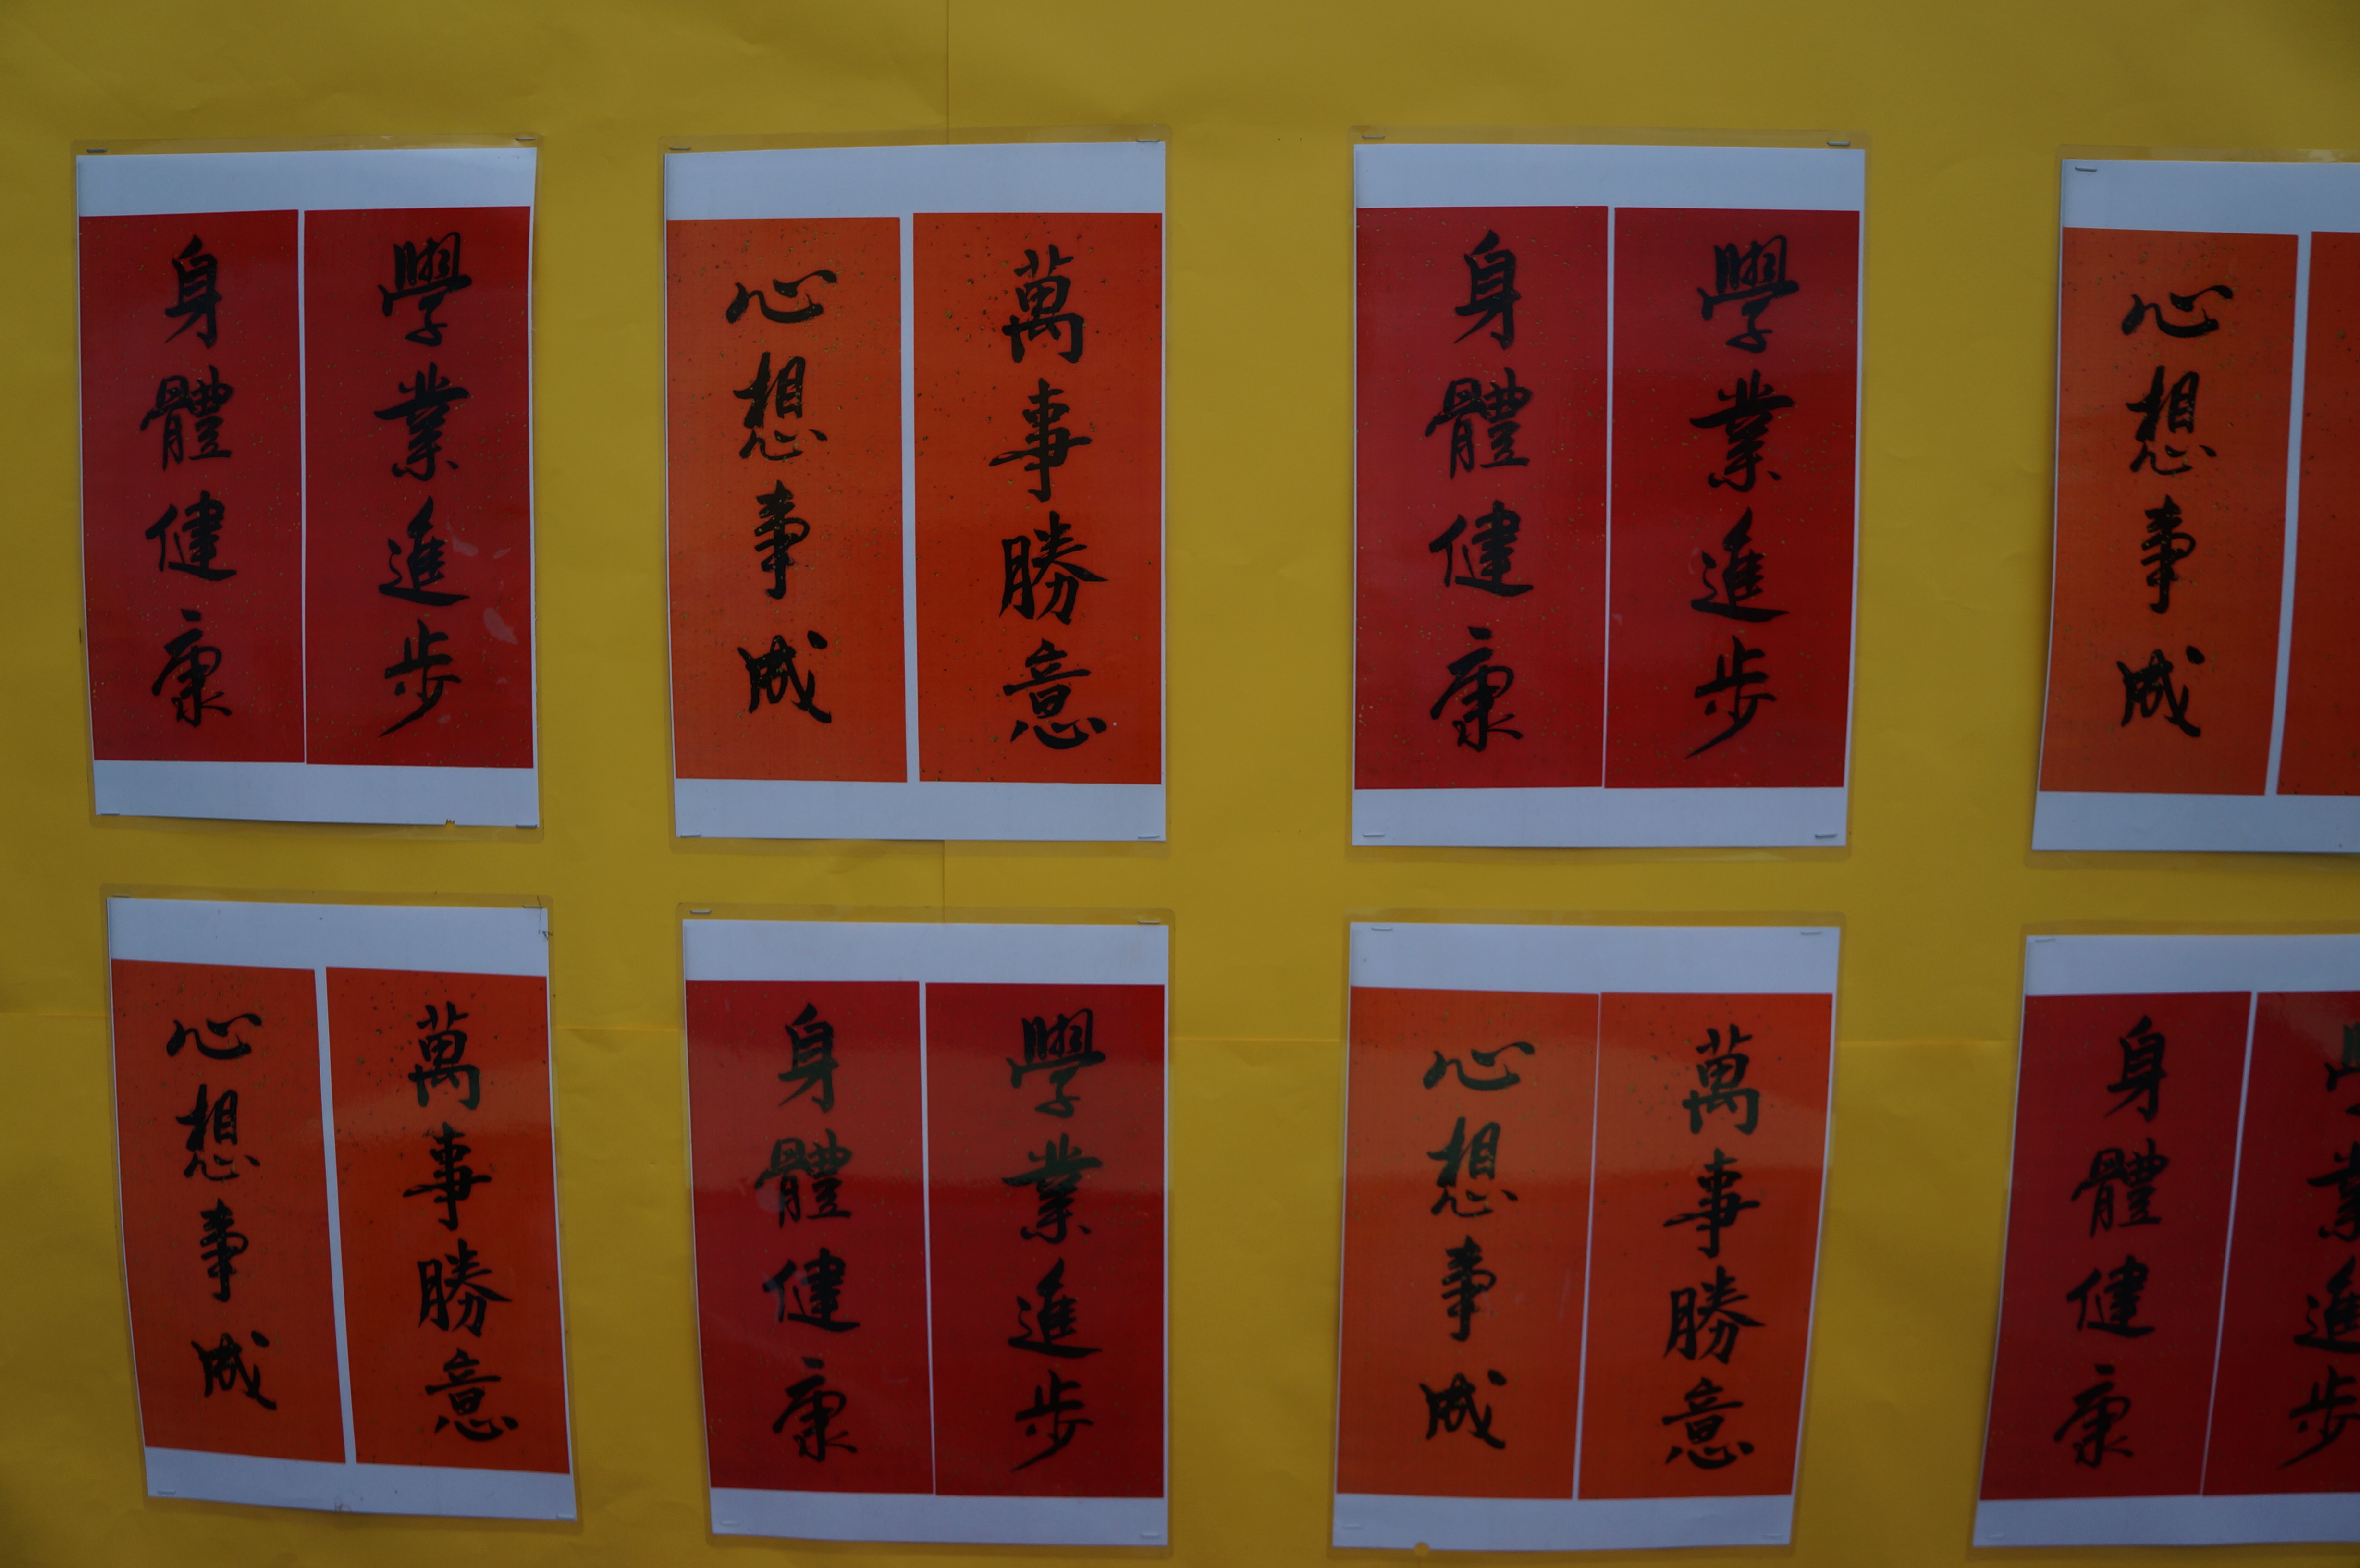 學業進步
身體健康
萬事勝意
心想事成
學業進步
身體健康
心想事成
萬事勝意
心想事成
學業進步
身體健康
萬事勝意
心想事成
學業進步
身體健康